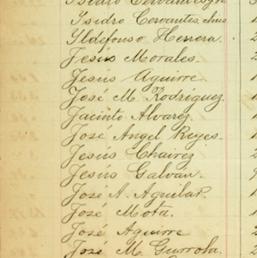 Isidro Cervantes
Isidro Cervantes
Yldefonso Herrera.
Jesús Morales.
Jesús Aguirre.
José M. Rodriguez
Jacinto Alvarez
José Angel Reyes.
Jesús Chairez
Jesús Galvan.
José A. Aguilar.
José Mota.
José Aguirre
José M. Gurrola